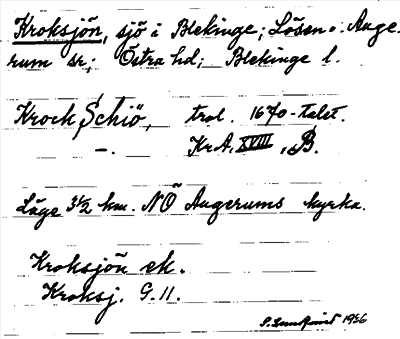 Kroksjön, sjö i Blekinge; Lösen o. Auge-
rum sr; Östra hd; Blekinge l.
Krock Schiö, trol. 1670-talet.
–. KrA, XVIII, B.
Läge 3½ km. NÖ Augerums kyrka.
Kroksjön ek.
Kroksj. G.11.
S. Lundquist 1926